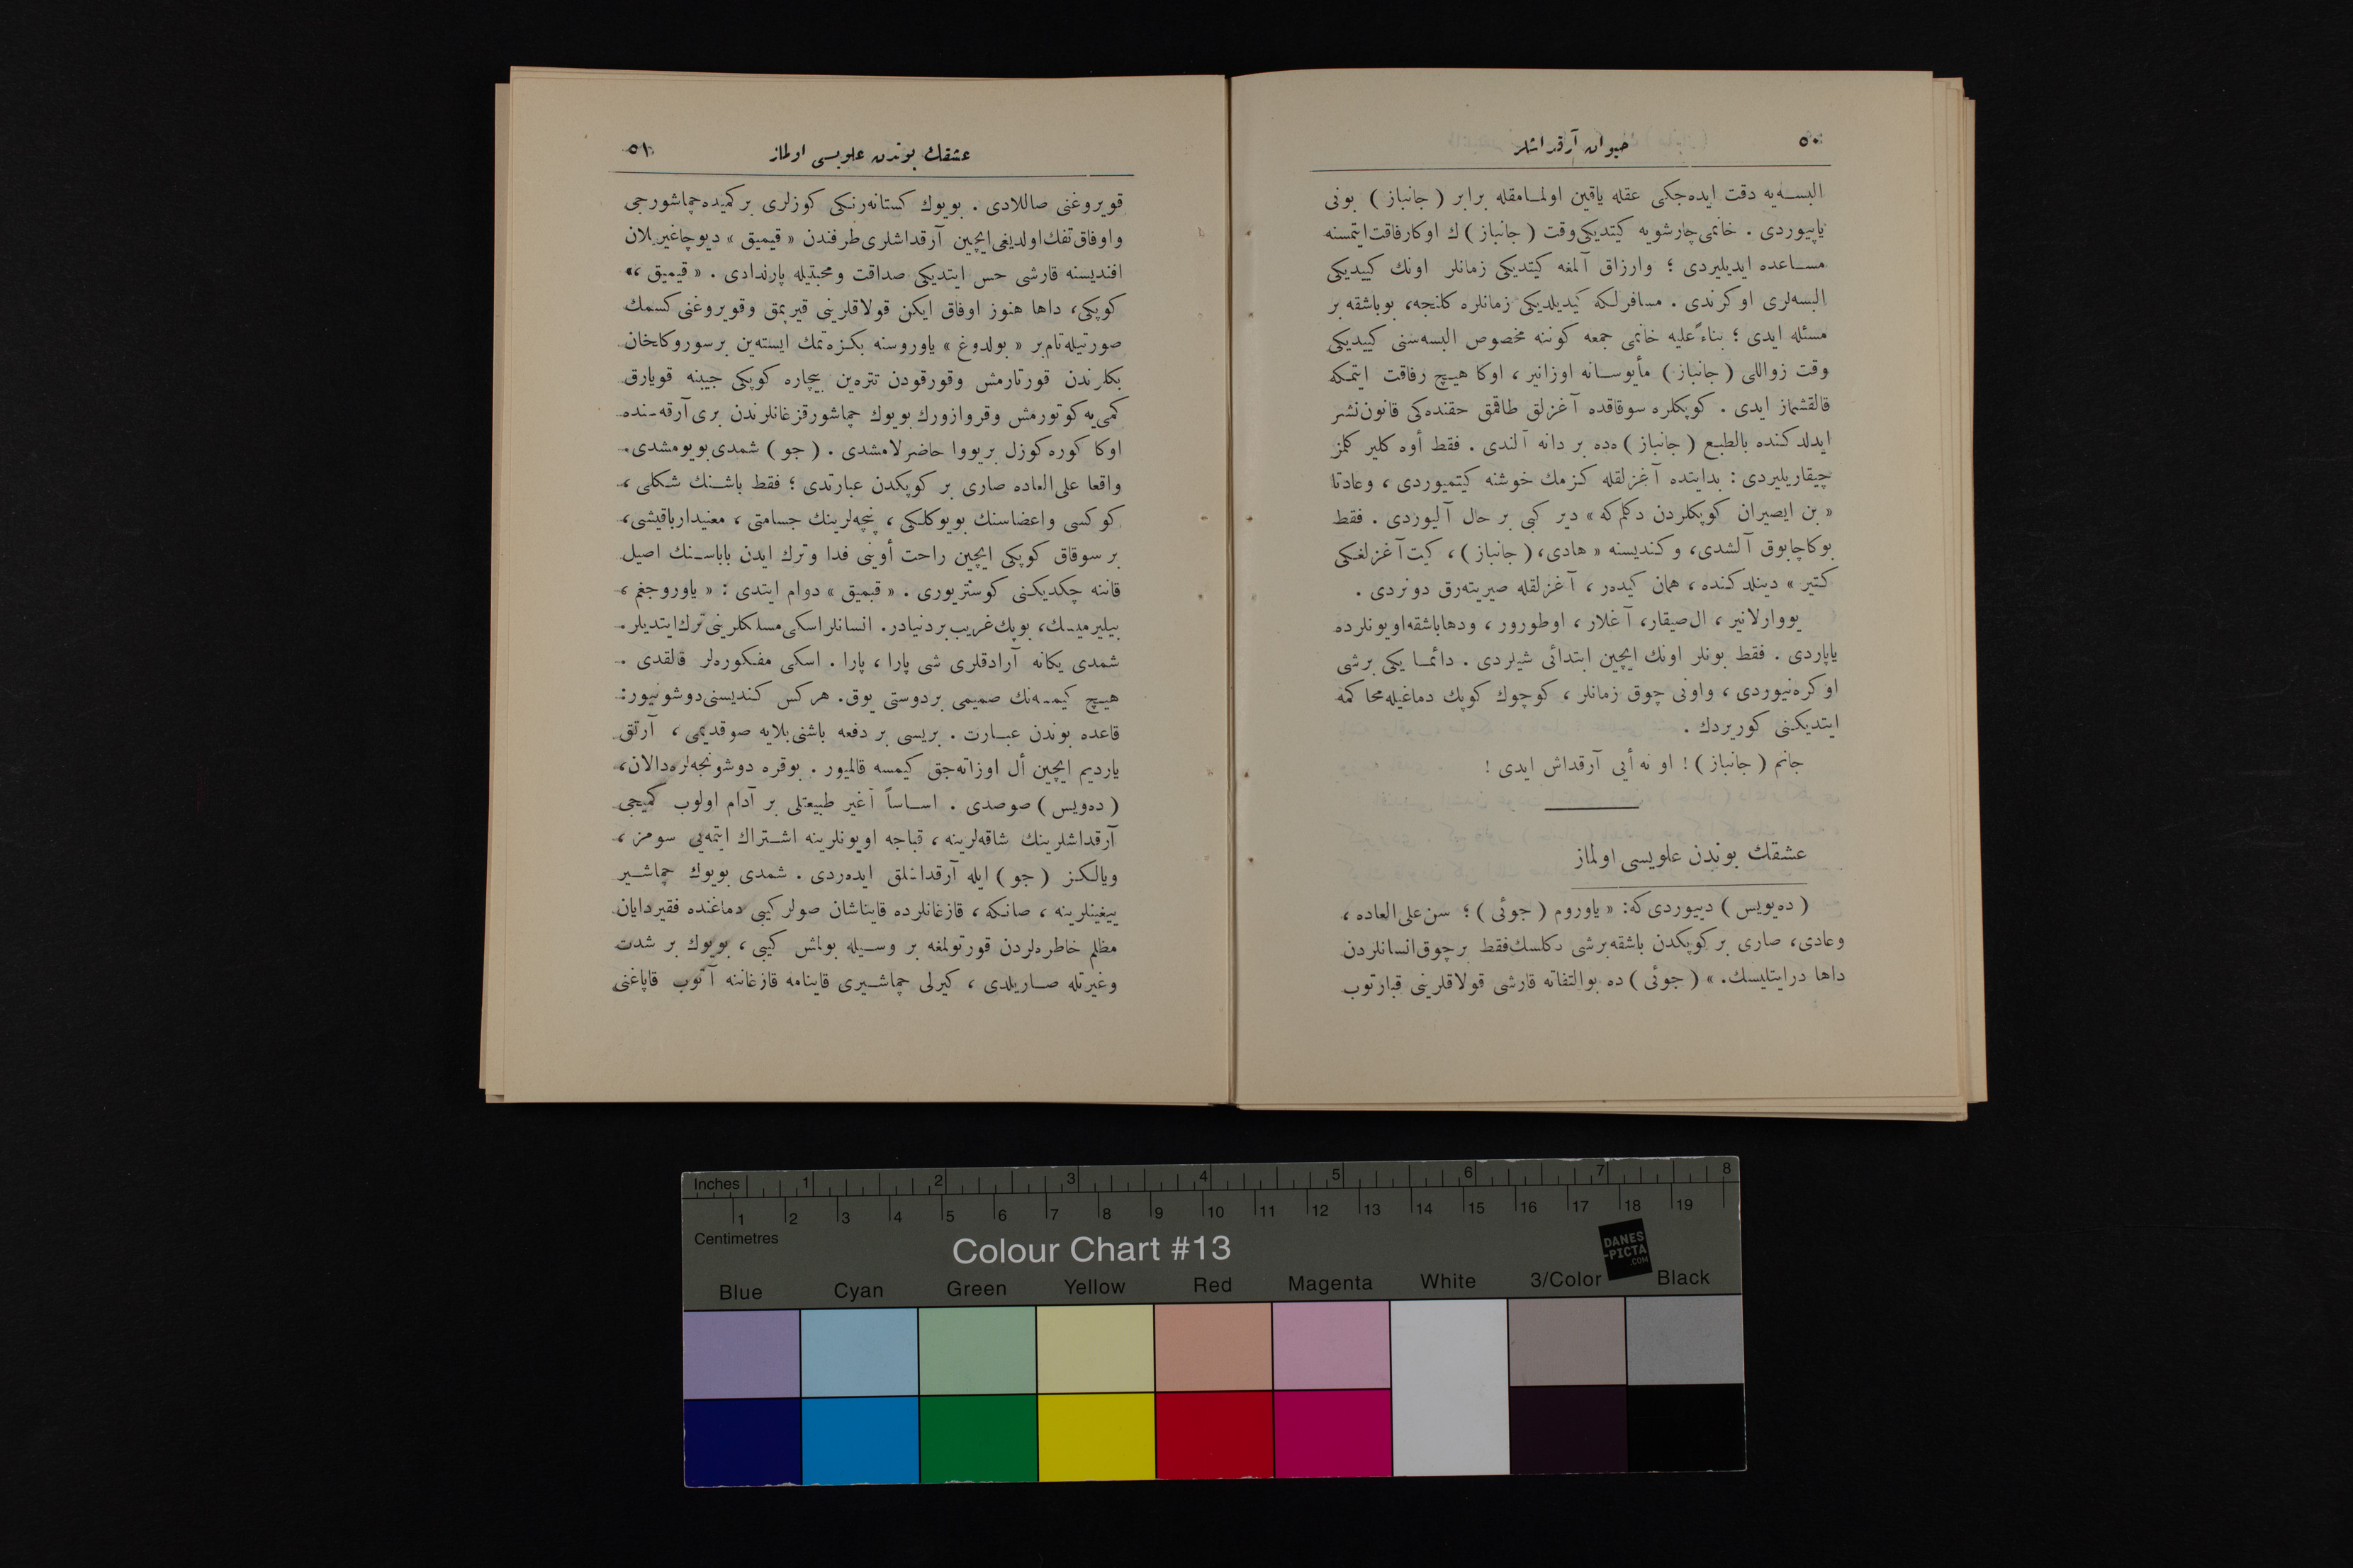 ٥٠
حیوان آرقداشلر
البسه‌یه دقت ایده‌جکی عقله یاقین اولمامقله برابر ( جانباز ) بونی
یاپیوردی . خانمی چارشویه کیتدیکی وقت ( جانباز ) ك اوکا رفاقت ایتمسنه
مساعده ایدیلیردی ؛ وارزاق آلمغه کیتدیکی زمانلر اونك کییدیکی
البسه‌لری اوکرندی . مسافرلکه کیدیلدیکی زمانلره کلنجه، بوباشقه بر
مسئله ایدی ؛ بناءً علیه خانمی جمعه کوننه مخصوص البسه‌سنی کییدیکی
وقت زواللی ( جانباز ) مأیوسانه اوزانیر ، اوکا هیچ رفاقت ایتمکه
قالقشماز ایدی . کوپکلره سوقاقده آغزلق طاقمق حقنده‌کی قانون نشر
ایدلدکنده بالطبع ( جانباز ) ه‌ده بر دانه آلندی . فقط أوه کلیر کلمز
چیقاریلیردی : بدایتده آغزلقله کزمك خوشنه کیتمیوردی ، وعادتا
« بن ایصیران کوپکلردن دکلم که » دیر کبی بر حال آلیوردی . فقط
بوکا چابوق آلشدی، وکندیسنه « هادی، ( جانباز ) ، کیت آغزلغکی
کتیر » دینلدکنده ، همان کیدەر ، آغزلقله صیریته‌رق دونردی .
یووارلانیر ، ال صیقار، آغلار ، اوطورور ، ودها باشقه اویونلرده
یاپاردی . فقط بونلر اونك ایچین ابتدائی شیلردی . دائما یکی برشی
اوکره‌نیوردی ، واونی چوق زمانلر ، کوچوك کوپك دماغیله محاکمه
ایتدیکنی کوریردك .
جانم ( جانباز ) ! او نه أیی آرقداش ایدی !
عشقك بوندن علویسی اولماز
( ده‌یویس ) دییوردی که: « یاوروم ( جوئی ) ؛ سن علی العاده ،
وعادی، صاری بر کوپکدن باشقه برشی دکلسك فقط بر چوق انسانلردن
داها درایتلیسك. » ( جوئی ) ده بوالتفاته قارشی قولاقلرینی قبارتوب
٥١
عشقك بوندن علویسی اولماز
قویروغنی صاللادی . بویوك کستانه‌رنکی کوزلری بر کمیده چماشورجی
واوفاق تفك اولدیغی ایچین آرقداشلری طرفندن « قیمیق » دیو چاغیریلان
افندیسنه قارشی حس ایتدیکی صداقت ومحبتیله پارلدادی . « قیمیق ،»
کوپکی، داها هنوز اوفاق ایکن قولاقلرینی قیرپمق وقویروغنی کسمك
صورتیله تام بر « بولدوغ » یاوروسنه بکزه‌تمك ایسته‌ین برسورو کلخان
بکلرندن قورتارمش وقورقودن تتره‌ین بیچاره کوپکی جیبنه قویارق
کمی‌یه کوتورمش وقروازورك بویوك چماشور قزغانلرندن بری آرقه‌سنده
اوکا کوره کوزل بر یووا حاضرلامشدی . ( جو ) شمدی بویومشدی.
واقعا علی العاده صاری بر کوپکدن عبارتدی ؛ فقط باشنك شکلی ،
کوکسی واعضاسنك بویوکلکی ، پنچه‌لرینك جسامتی ، معنیدار باقیشی،
بر سوقاق کوپکی ایچین راحت أوینی فدا وترك ایدن باباسنك اصیل
قاننه چکدیکنی کوستریوری . « قیمیق » دوام ایتدی : « یاوروجغم ،
بیلیرمیسك، بوپك غریب بر دنیادر. انسانلر اسکی مسلکلرینی ترك ایتدیلر.
شمدی یکانه آرادقلری شی پارا ، پارا . اسکی مفکوره‌لر قالقدی .
هیچ کیمسه‌نك صمیمی بر دوستی یوق. هرکس کندیسنی دوشونیور:
قاعده بوندن عبارت . بریسی بر دفعه باشنی بلایه صوقدیمی ، آرتق
یاردیم ایچین أل اوزاته‌جق کیمسه قالمیور . بوقره دوشونجه‌لره دالان،
( ده‌ویس ) صوصدی . اساساً آغیر طبیعتلی بر آدام اولوب کمیجی
آرقداشلرینك شاقه‌لرینه ، قباجه اویونلرینه اشتراك ایتمه‌یی سومز ،
ویالکز ( جو ) ایله آرقداشلق ایده‌ردی . شمدی بویوك چماشیر
ییغینلرینه ، صانکه ، قازغانلرده قایناشان صولر کیبی دماغنده فقیردایان
مظلم خاطره‌لردن قورتولمغه بر وسیله بولمش کیبی ، بویوك بر شدت
وغیرتله صاریلدی ، کیرلی چماشیری قاینامه قازغاننه آتوب قاپاغنی
Inches 1 2 3 4 5 6 7 8
1 2 3 4 5 6 7 8 9 10 11 12 13 14 15 16 17 18 19
Centimetres
Colour Chart #13
DANES
-PICTA
.COM
Blue Cyan Green Yellow Red Magenta White 3/Color Black